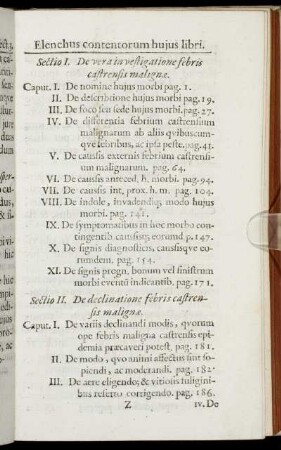 Elenchus contentorum hujus libri.
Sectio I. De vera investigatione febris
castrensis malignæ.
Caput. I. De nomine hujus morbi pag. 1.
II. De descriptione hujus morbi pag. 19.
III. De foco seu sede hujus morbi. pag. 27.
IV. De differentia febrium castrensium
malignarum ab aliis qvibuscun-
qve febribus, ac ipsa peste. pag. 45.
V. De causis externis febrium castrensi-
um malignarum. pag. 64.
VI. De causis anteced. h. morbi. pag. 94.
VII. De causis int. prox. h. m. pag. 104.
VIII. De indole, invadendiq; modo hujus
morbi. pag.
IX. De symptomatibus in hoc morbo con-
tingentib. causisq; eorund p. 147.
X. De signis diagnosticis, causisqve eo-
rundem. pag. 154.
XI. De signis progn. bonum vel sinistrum
morbi eventũ indicantib. pag. 171.
Sectio II. De declinatione febris castren-
sis malignæ.
Caput. I. De variis declinandi modis, qvorum
ope febris maligna castrensis epi-
demia præcaveri potest. pag. 181.
II. De modo, qvo animi affectus sint so-
piendi, ac moderandi. pag. 182.
III. De aere eligendo; & vitiosis fuligini-
bus referto corrigendo. pag. 186.
Z IV. De